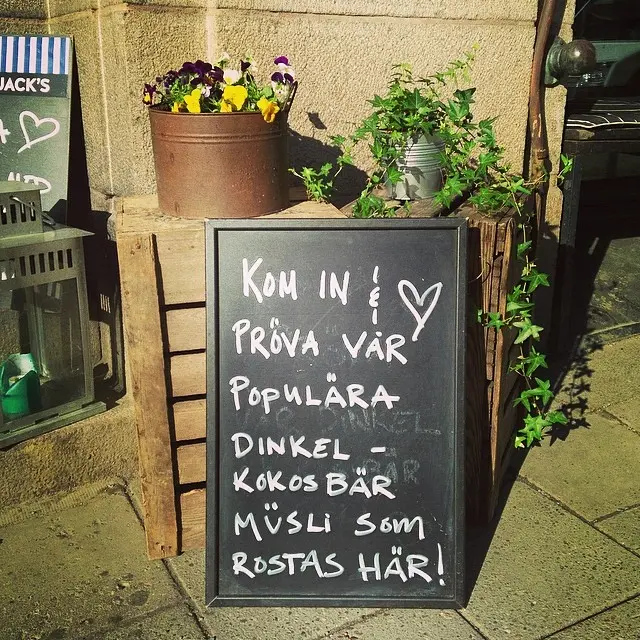 JACK'S
KOM IN &
PRÖVA VÅR
POPULÄRA
DINKEL -
KOKOSBÄR
MÜSLi SOM
ROSTAS HÄR!